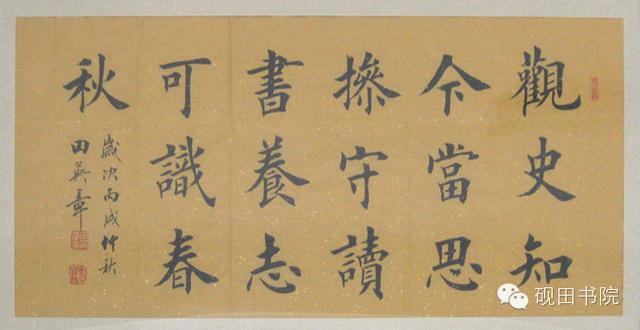 觀史知
今當思
摻守讀
書養志
可識春
秋
歲次丙戌仲秋
田英章
砚田书院